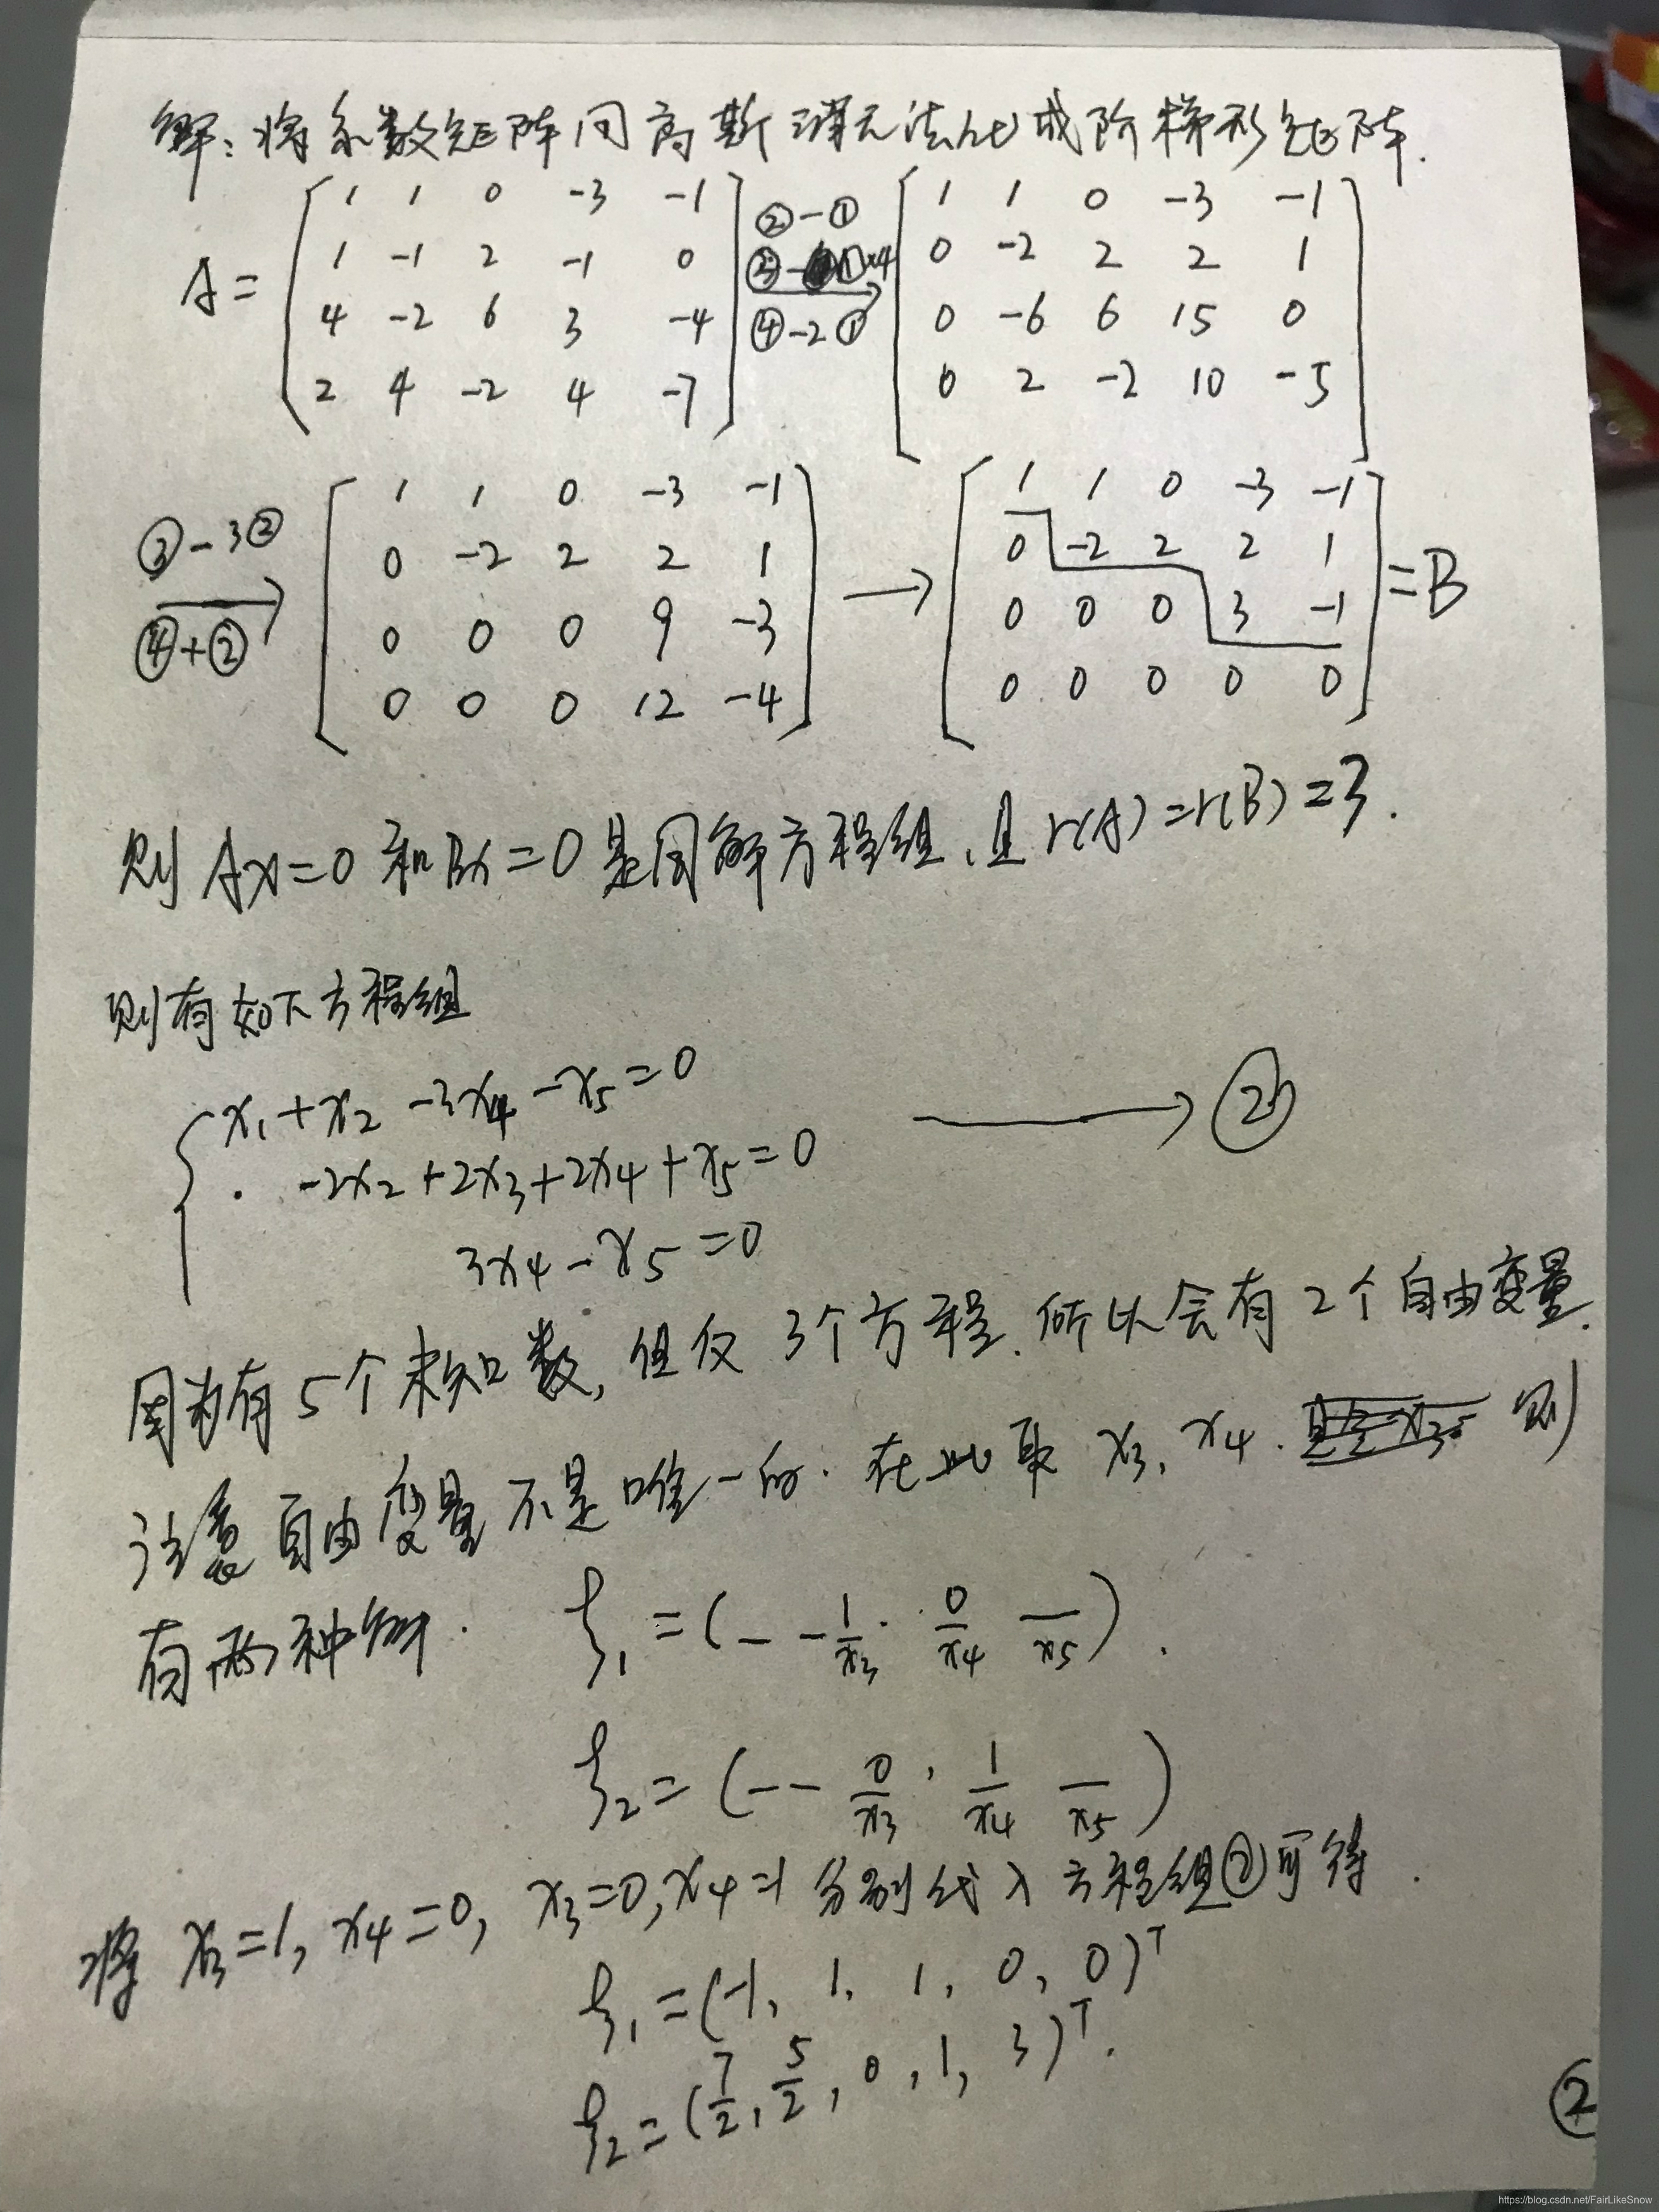 解：将系数矩阵用高斯消元法化成阶梯形矩阵.
A = [ 1 1 0 -3 -1 ; 1 -1 2 -1 0 ; 4 -2 6 3 -4 ; 2 4 -2 4 -7 ] ②-① ③-①×4 ④-2① → [ 1 1 0 -3 -1 ; 0 -2 2 2 1 ; 0 -6 6 15 0 ; 0 2 -2 10 -5 ]
③-3② ④+② → [ 1 1 0 -3 -1 ; 0 -2 2 2 1 ; 0 0 0 9 -3 ; 0 0 0 12 -4 ] → [ 1 1 0 -3 -1 ; 0 -2 2 2 1 ; 0 0 0 3 -1 ; 0 0 0 0 0 ] = B
则 Ax=0 和 Bx=0 是同解方程组,且 r(A)=r(B)=3.
则有如下方程组
{ x₁+x₂-3x₄-x₅=0 → ②
-2x₂+2x₃+2x₄+x₅=0
3x₄-x₅=0
因为有5个未知数,但仅3个方程.所以会有2个自由变量.
注意自由变量不是唯一的.在此取 x₃,x₄. 则
有两种解. ξ₁=(- - 1/x₃ . 0/x₄ —/x₅).
ξ₂=(- - 0/x₃ , 1/x₄ —/x₅)
将 x₃=1, x₄=0, x₃=0, x₄=1 分别代入方程组②可得.
ξ₁=(-1, 1, 1, 0, 0)ᵀ
ξ₂=(7/2, 5/2, 0, 1, 3)ᵀ.
②
https://blog.csdn.net/FairLikeSnow